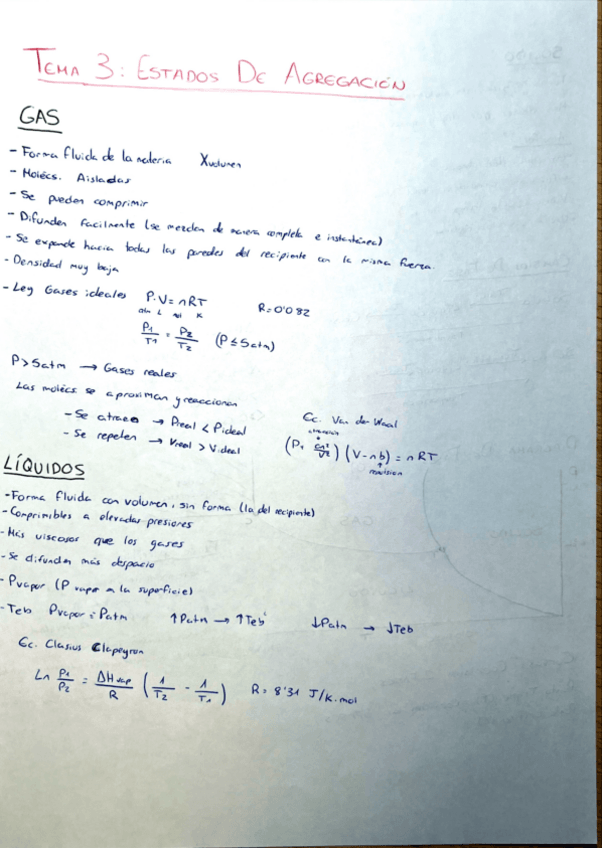 TEMA 3: ESTADOS DE AGREGACIÓN
GAS
- Forma fluida de la materia X volumen
- Moléculas. Aisladas
- Se pueden comprimir
- Difunden facilmente (se mezclan de manera completa e instantánea)
- Se expande hacia todas las paredes del recipiente con la misma fuerza.
- Densidad muy baja
- Ley Gases ideales P·V = nRT R = 0'082
atm L mol K
P1/T1 = P2/T2 (P ≤ 5atm)
P > 5atm → Gases reales
Las molécs se aproximan y reaccionan
- Se atraen → Preal < P.ideal
- Se repelen → Vreal > V.ideal
Ec. Van der Waal
atracción
(P + an²/V²) (V - nb) = nRT
repulsion
LÍQUIDOS
- Forma fluida con volumen, sin forma (la del recipiente)
- Comprimibles a elevadas presiones
- Más viscosos que los gases
- Se difunden más despacio
- Pvapor (P vapor en la superficie)
- Teb Pvapor = Patm ↑Patm → ↑Teb ↓Patm → ↓Teb
Ec. Clasius Clapeyron
Ln P1/P2 = ΔHvap/R (1/T2 - 1/T1) R = 8'31 J/K·mol